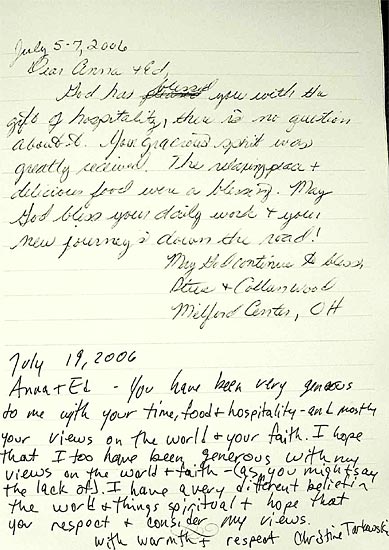 July 5-7, 2006
Dear Anna + Ed,
God has blessed you with the
gift of hospitality, there is no question
about it. Your gracious spirit was
greatly received. The relaxing place +
delicious food were a blessing. May
God bless your daily work & your
new journey's down the road!
May God continue to bless
Steve +
Milford Center, OH
July 19, 2006
Anna + Ed - You have been very generous
to me with your time, food + hospitality - and mostly
your views on the world + your faith. I hope
that I too have been generous with my
views on the world + faith - (as you might say
the lack of). I have a very different belief in
the world + things spiritual + hope that
you respect + consider my views.
with warmth + respect Christine Tarkowski